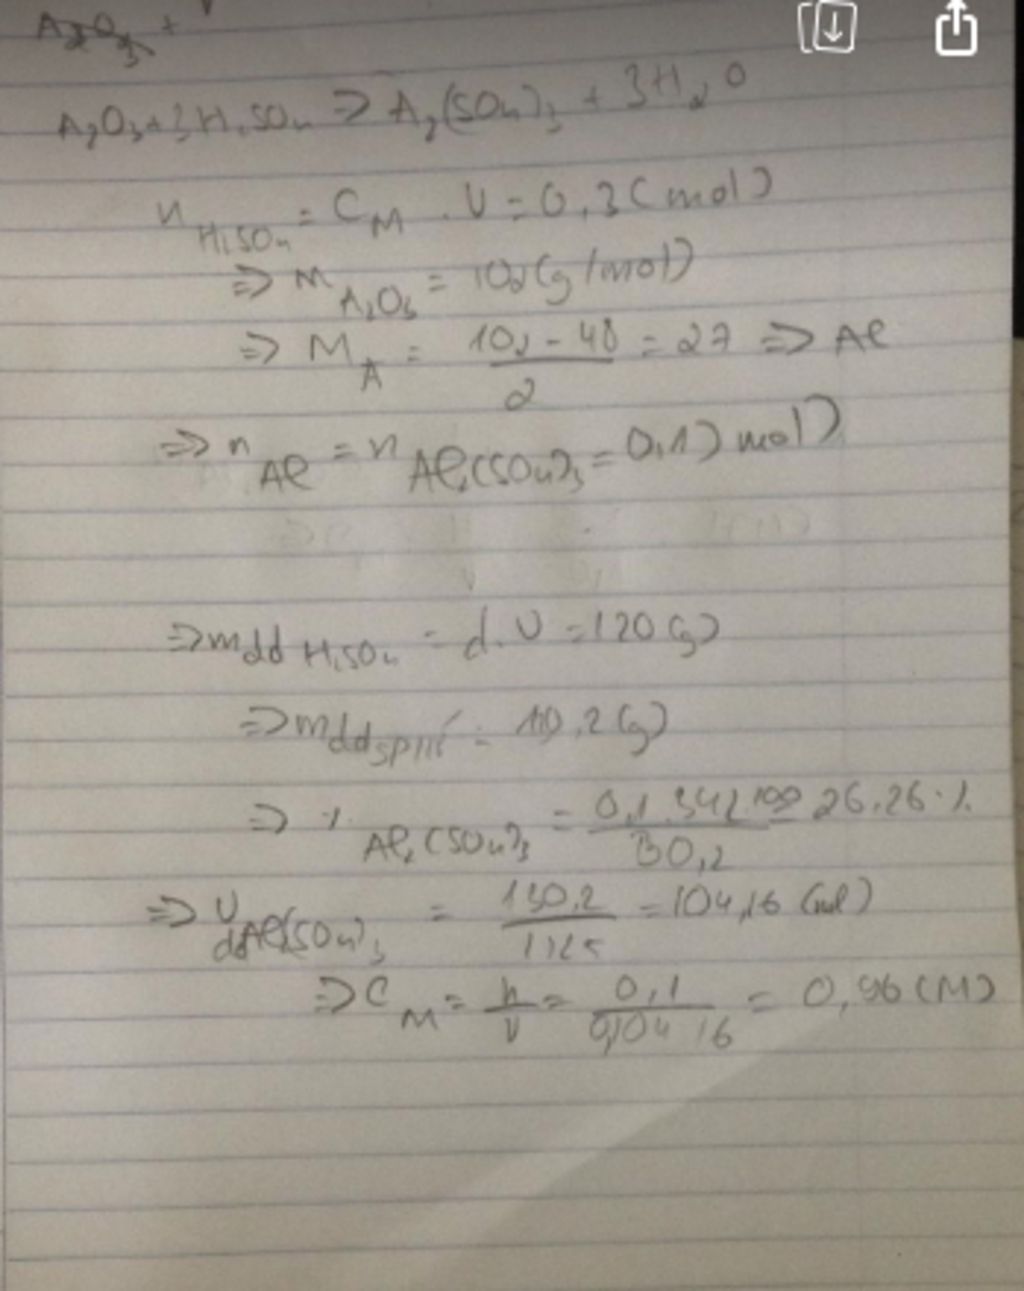 A₂O₃ +
A₂O₃ + 3H₂SO₄ => A₂(SO₄)₃ + 3H₂O
n H₂SO₄ = C_M . V = 0,3 (mol)
=> M A₂O₃ = 102 (g/mol)
=> M_A = (102 - 48)/2 = 27 => Al
=> n Al = n Al₂(SO₄)₃ = 0,1 (mol)
=> mdd H₂SO₄ = d.V = 120 (g)
=> mdd spứ = 130,2 (g)
=> % Al₂(SO₄)₃ = (0,1.342.100)/130,2 = 26.26%
=> V dd Al₂(SO₄)₃ = 130,2/1,25 = 104,16 (ml)
=> C_M = n/V = 0,1/0,10416 = 0,96 (M)